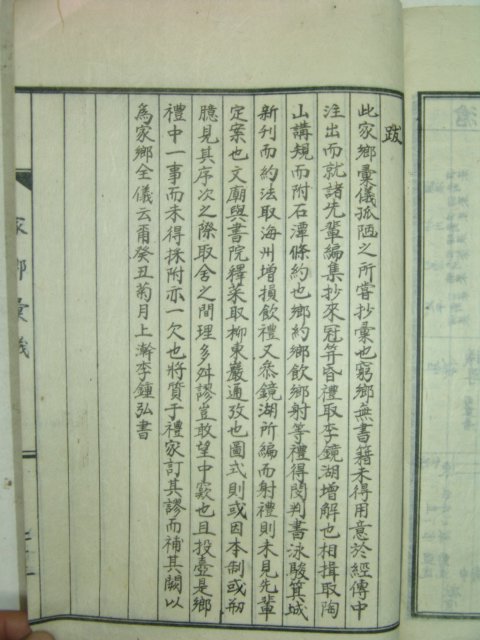 跋
此家鄉彙儀孤陋之所嘗抄彙也窮鄉無書籍未得用意於經傳中
注出而就諸先輩編集抄來冠笄昏禮取李鏡湖增解也相揖取陶
山講規而附石潭條約也鄉約鄉飲鄉射等禮得閔判書泳駿箕城
新刊而約法取海州增損飲禮又忝鏡湖所編而射禮則未見先輩
定案也文廟與書院釋菜取柳東巖通攷也圖式則或因本制或刱
臆見其序次之際取舍之間理多舛謬豈敢望中窾也且投壺是鄉
禮中一事而未得採附亦一欠也將質于禮家訂其謬而補其闕以
為家鄉全儀云爾癸丑菊月上澣李鍾弘書
家鄉彙儀